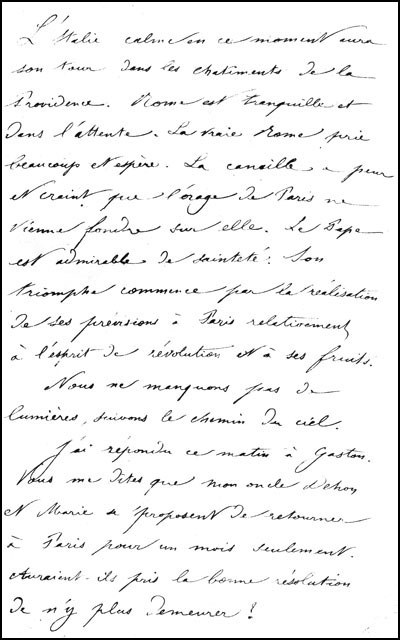 L'Italie calme en ce moment aura
son tour dans les chatiments de la
Providence. Rome est tranquille et
dans l'attente. La vraie Rome prie
beaucoup et espère. La canaille a peur
et craint que l'orage de Paris ne
vienne fondre sur elle. Le Pape
est admirable de sainteté. Son
triomphe commence par la réalisation
de ses prévisions à Paris relativement
à l'esprit de révolution et à ses fruits.
Nous ne manquons pas de
lumières, suivons le chemin du ciel.
J'ai répondu ce matin à Gaston.
Vous me dites que mon oncle Dehon
et Marie se proposent de retourner
à Paris pour un mois seulement.
Auraient-ils pris la bonne résolution
de n'y plus demeurer !